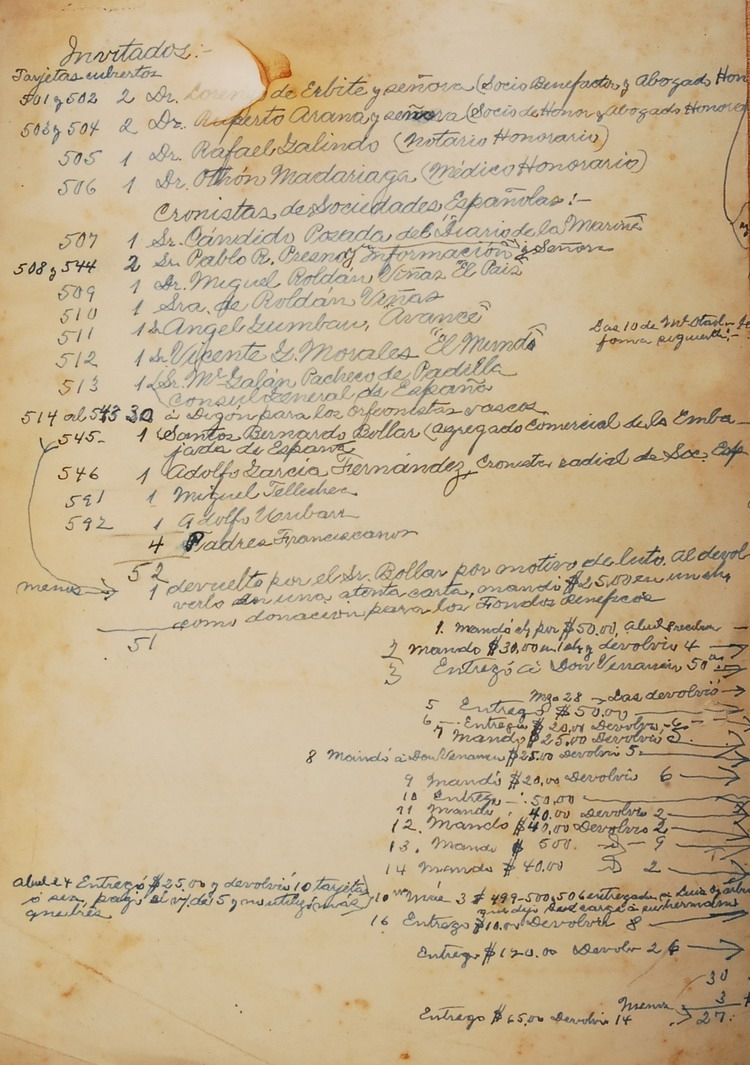 Invitados:-
Tarjetas cubiertos
501 y 502 2 Dr. Lorenzo de Erbite y señora (Socio Benefactor y Abogado Hon
503 y 504 2 Dr. Ruperto Arana y señora (Socio de Honor y Abogado Honora
505 1 Dr. Rafael Galindo (Notario Honorario)
506 1 Dr. Othón Madariaga (Médico Honorario)
Cronistas de Sociedades Españolas:-
507 1 Sr. Cándido Posada del "Diario de la Marina"
508 y 544 2 Sr. Pablo R. Presno, "Información" y Señora
509 1 Dr. Miguel Roldán Viñas "El Pais"
510 1 Sra. de Roldán Viñas
511 1 Sr. Angel Gumbau, "Avance"
512 1 Sr. Vicente G. Morales "El Mundo"
513 1 Sr. Mel Galán Pacheco de Padilla
Consul general de España
514 al 543 30 á Digón para los orfeonistas vascos
545- 1 (Santos Bernardo Bollar (agregado comercial de la Emba-
jada de España
546 1 Adolfo García Fernández, Cronista radial de Soc. Esp
591 1 Miguel Tellechea
592 1 Adolfo Uribarri
4 Padres Franciscanos
52
menos → 1 devuelto por el Sr. Bollar por motivo de luto. Al devol
verlo en una atenta carta, mandó $25.00 en un ch/
como donacion para los Fondos Beneficos
51
Las 10 de
forma siguiente:-
1. Mandó ch/ por $50.00, Abril 8
2 Mandó $30.00 en ch/ y devolvió 4 →
3 Entregó á Don Venancio 50.00 →
Mzo 28 → Las devolvió →
5 Entregó $50.00
6 - Entregó $20.00 Devolvió
7 Mandó $25.00 Devolvió
8 Mandó á Don Venancio $25.00 Devolvió 5.
9 Mandó $20.00 Devolvió 6 →
10 Entregó - 50.00
11 Mandó 40.00 Devolvió 2
12. Mandó $40.00 Devolvió 2
13. Mandó $ 5.00 D - 9
14 Mandó $40.00 D 2 →
Abril 24 Entregó $25.00 y devolvió 10 tarjetas
ó sea, pagó el v/ de 5 y no utilizó más
que tres
3 # 499-500, 506 entregadas a Luis
que dijo
16 Entregó $10.00 Devolvió 8
Entregó $120.00 Devolvió 26 →
30
Menos 3
27.
Entregó $65.00 Devolvió 14